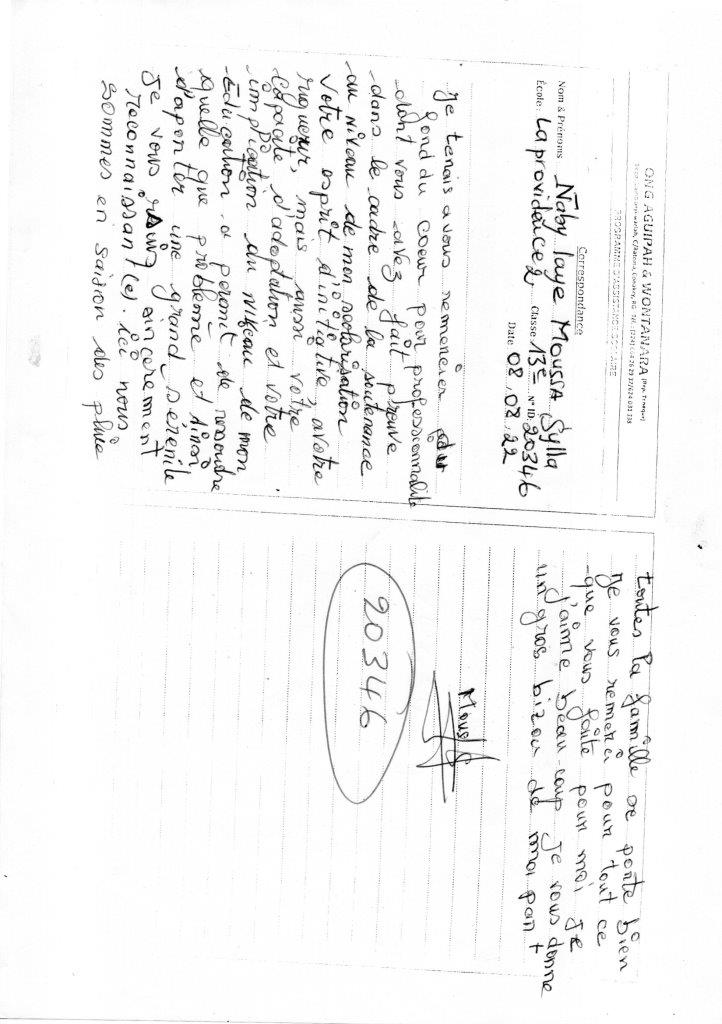 ONG AGUIPAH & WONTANARA (Rep. Tranquy)
PROGRAMME D'ASSISTANCE SCOLAIRE
Correspondance
Nom & Prénoms Naby laye Moussa Sylla
École: La providence 2 Classe 13e N° ID: 20346
Date 08.08.22
Je tenais a vous remercier pour
fond du coeur pour professionnalite
dont vous avez fait preuve
dans le cadre de la soutenance
au niveau de mon scolarisation
votre esprit d'initiative, a votre
mais aussi votre
capacite d'adaptation et votre
implication au niveau de mon
Education a permit de resoudre
quelle que problème et sinon
d'aporter une grand serenite
Je vous sincerement
reconnaissant(e). ici nous
sommes en saison des pluie
toutes la famille se porte bien
Je vous remerci pour tout ce
que vous faite pour moi Je
J'aime beau-coup Je vous donne
un gros bizou de moi part
Mouss
20346